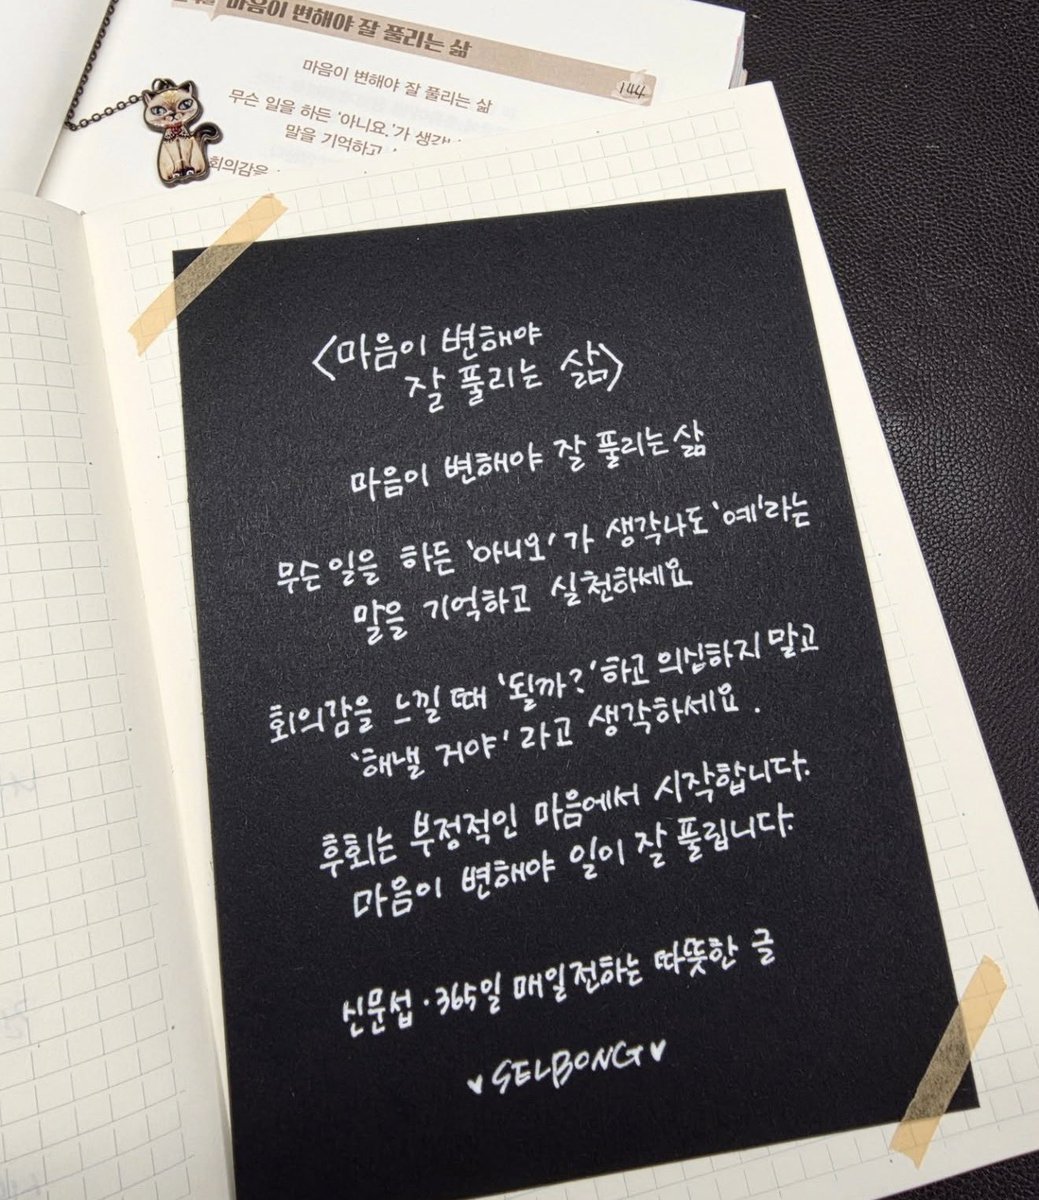 마음이 변해야 잘 풀리는 삶
144
마음이 변해야 잘 풀리는 삶
무슨 일을 하든 '아니요.'가
말을 기억하고
회의감을
<마음이 변해야
잘 풀리는 삶>
마음이 변해야 잘 풀리는 삶
무슨 일을 하든 '아니오'가 생각나도 '예'라는
말을 기억하고 실천하세요
회의감을 느낄 때 '될까?' 하고 의심하지 말고
'해낼 거야' 라고 생각하세요.
후회는 부정적인 마음에서 시작합니다.
마음이 변해야 일이 잘 풀립니다.
신문섭·365일 매일 전하는 따뜻한 글
♥SELBONG♥